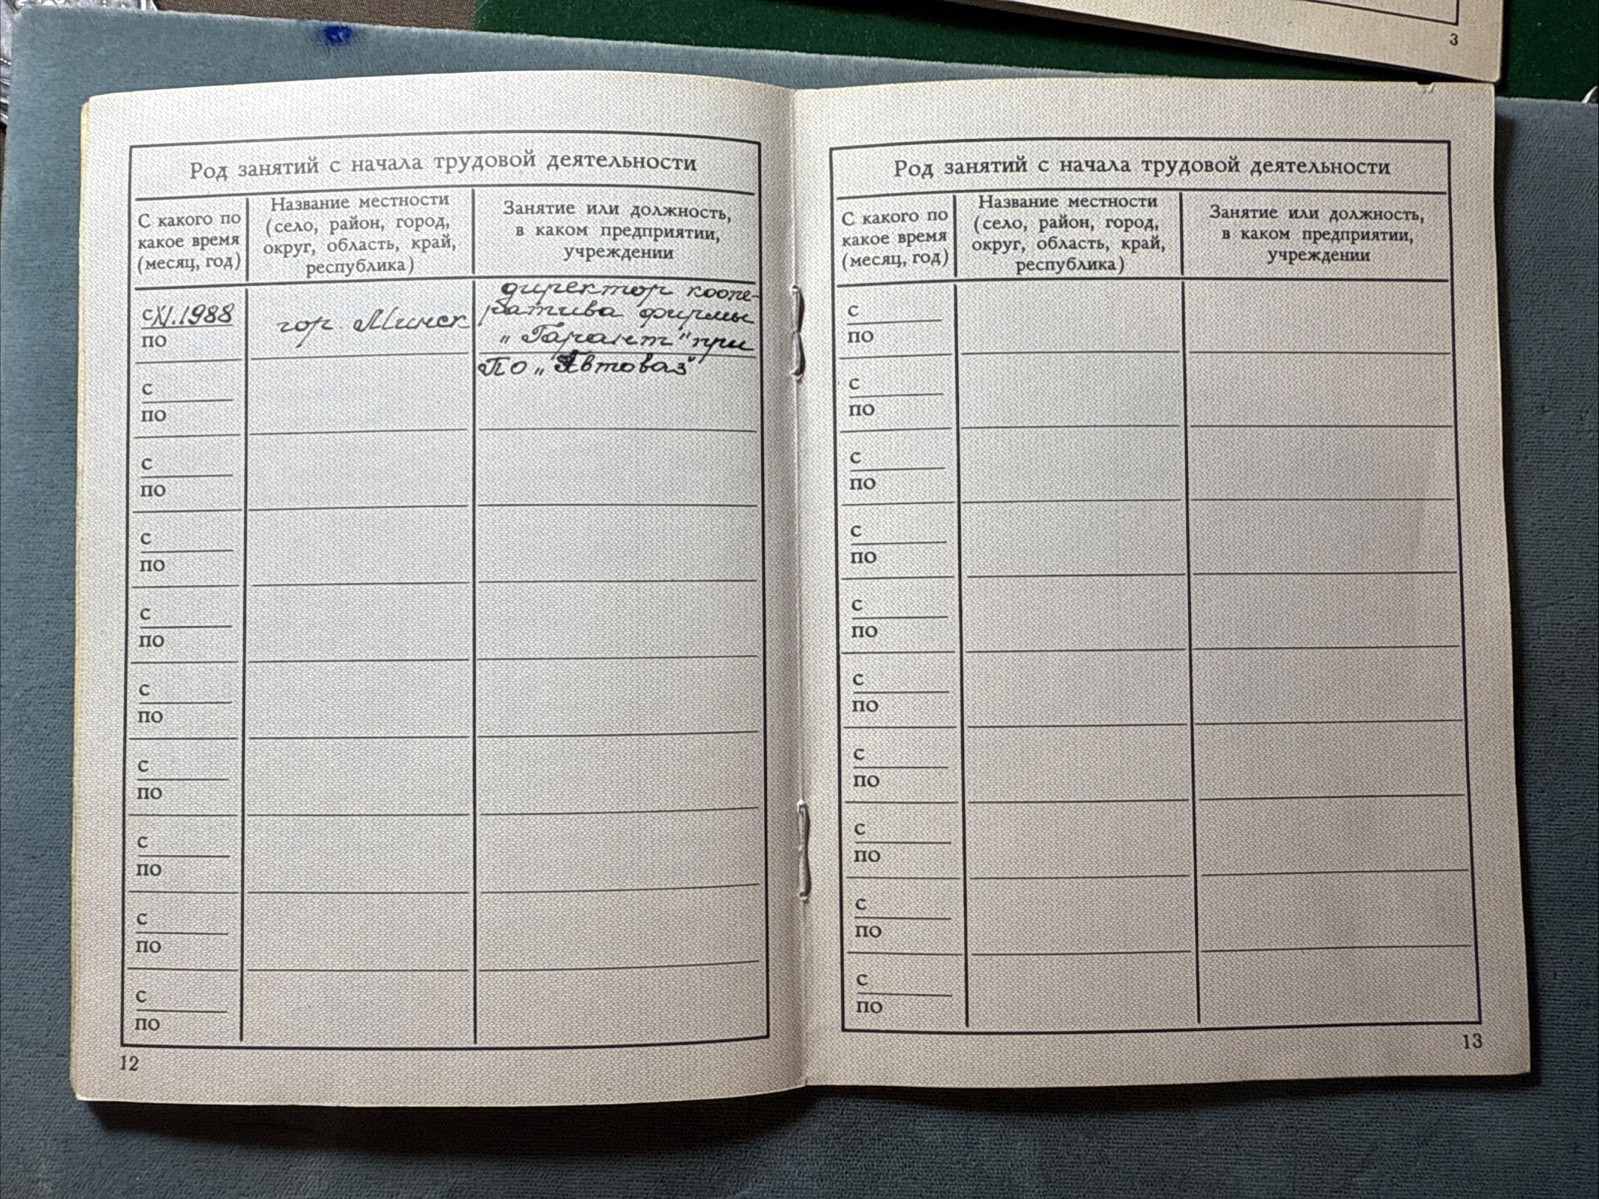 3
Род занятий с начала трудовой деятельности
С какого по
какое время
(месяц, год)
Название местности
(село, район, город,
округ, область, край,
республика)
Занятие или должность,
в каком предприятии,
учреждении
с XI.1988
по
гор. Минск
директор коопе-
ратива фирмы
„Гарант" при
ПО „Автоваз"
с
по
с
по
с
по
с
по
с
по
с
по
с
по
с
по
с
по
12
Род занятий с начала трудовой деятельности
С какого по
какое время
(месяц, год)
Название местности
(село, район, город,
округ, область, край,
республика)
Занятие или должность,
в каком предприятии,
учреждении
с
по
с
по
с
по
с
по
с
по
с
по
с
по
с
по
с
по
с
по
13